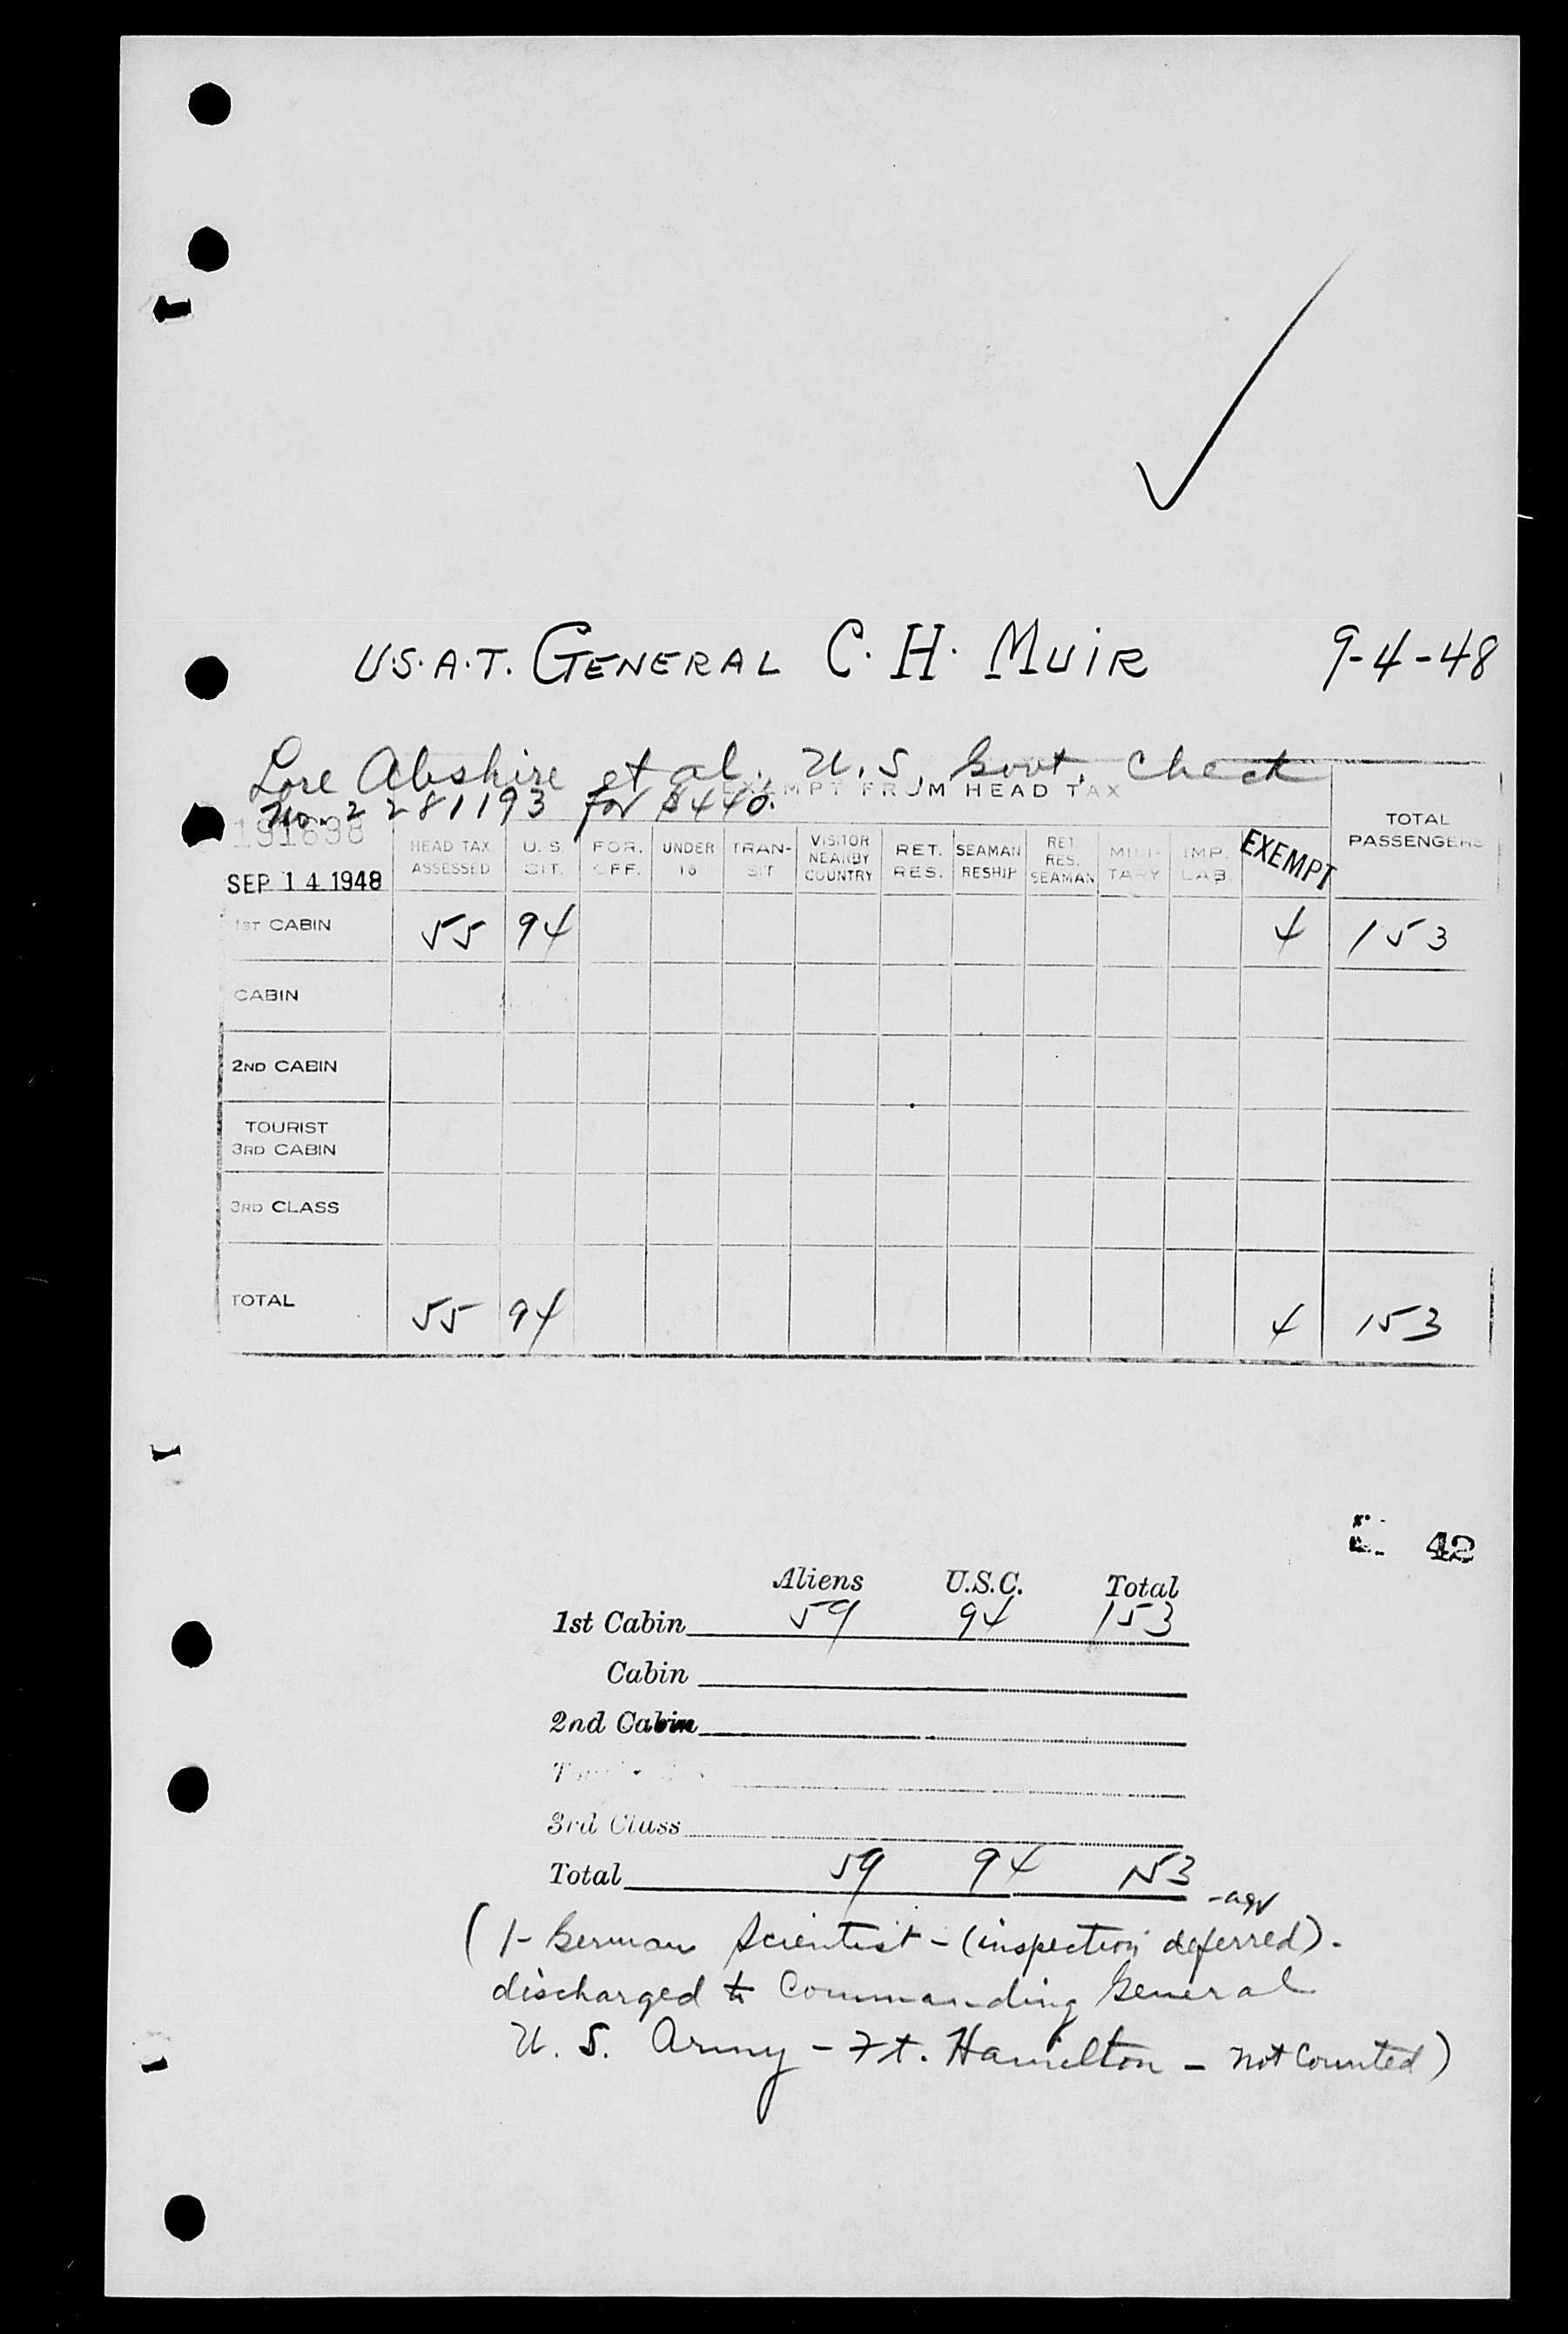 U.S.A.T. GENERAL C. H. MUIR 9-4-48
Lore Abshire et al. U.S. Govt. Check
EXEMPT FROM HEAD TAX
No. 2281193 for $440.
191698
SEP 14 1948
HEAD TAX ASSESSED U.S. CIT. FOR. OFF. UNDER 16 TRAN-SIT VISITOR NEARBY COUNTRY RET. RES. SEAMAN RESHIP RET. RES. SEAMAN MILI-TARY IMP. LAB. EXEMPT TOTAL PASSENGERS
1ST CABIN 55 94 4 153
CABIN
2ND CABIN
TOURIST
3RD CABIN
3RD CLASS
TOTAL 55 94 4 153
42
Aliens U.S.C. Total
1st Cabin 59 94 153
Cabin
2nd Cabin
3rd Class
Total 59 94 153
(1- German Scientist - (inspection deferred).
discharged to Commanding General
U.S. Army - Ft. Hamilton - not Counted)